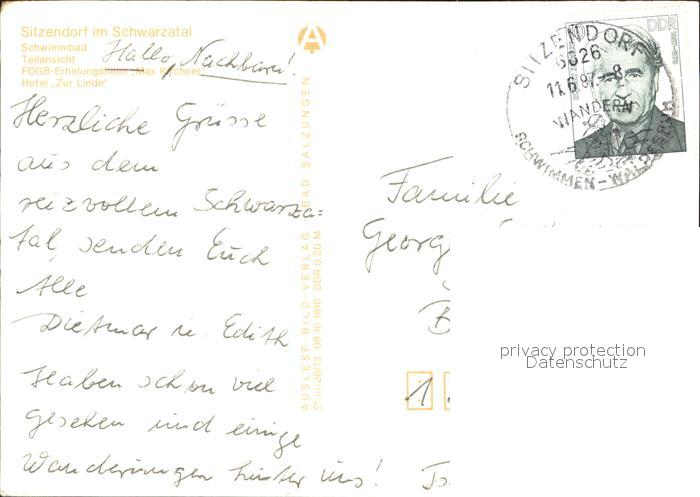 Sitzendorf im Schwarzatal
Schwimmbad
Teilansicht
FDGB-Erholungsheim „Max Kirchner"
Hotel „Zur Linde"
Hallo, Nachbarn!
Herzliche Grüsse
aus dem
reizvollem Schwarza=
tal, senden Euch
Alle
Dietmar u. Edith
Haben schon viel
gesehen und einige
Wanderungen hinter uns!
AUSLESE-BILD-VERLAG BAD SALZUNGEN
09 10 1610 DDR 0,20 M
DDR
SITZENDORF
6826
11.6.87-8
WANDERN
SCHWIMMEN
Familie
Georg
B
1
privacy protection
Datenschutz